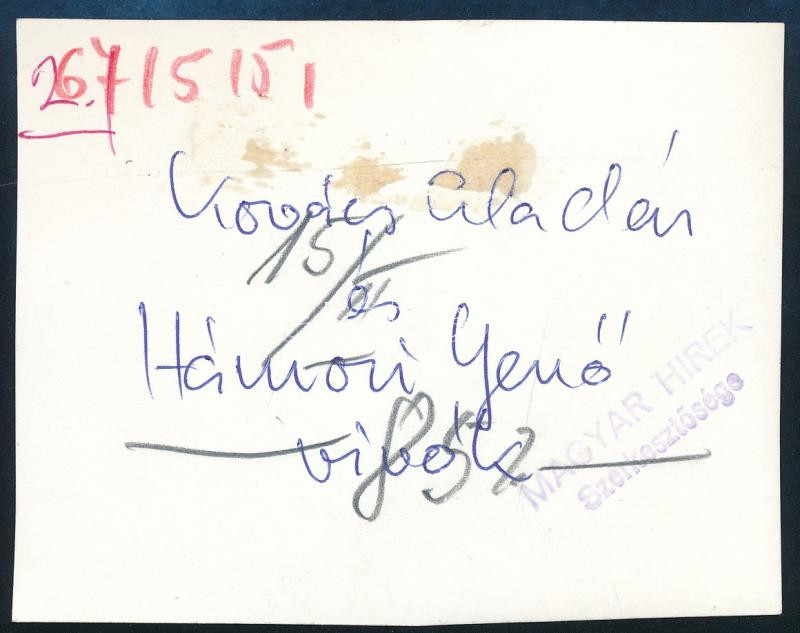 26.7/5151
Kovács Aladár
15/III
és
Hámori Jenő
vívók
852
MAGYAR HIREK
Szerkesztősége